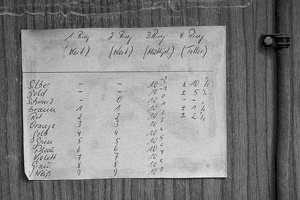 1. Ring 2. Ring 3. Ring 4. Ring
(Wert) (Wert) (Multipl.) (Toller)
Silber - - 10⁻² ± 10 %
Gold - - 10⁻¹ ± 5 %
Schwarz - 0 10⁰ -
braun 1 1 10¹ ± 1 %
Rot 2 2 10² ± 2 %
Orange 3 3 10³
Gelb 4 4 10⁴
Grün 5 5 10⁵
Blau 6 6 10⁶
Violett 7 7 10⁷
Grau 8 8 10⁸
Weiß 9 9 10⁹